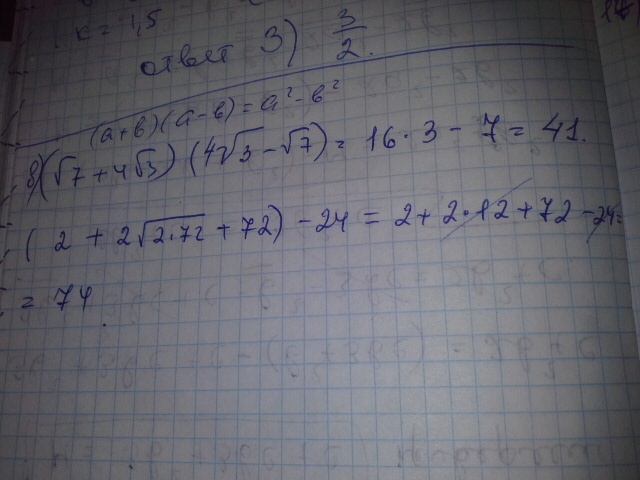 к = 1,5
ответ 3) 3/2.
(а+в)(а-в) = а² - в²
б) (√7 + 4√3) (4√3 - √7) = 16 · 3 - 7 = 41.
( 2 + 2√2·72 + 72) - 24 = 2 + 2·12 + 72 - 24 =
= 74.